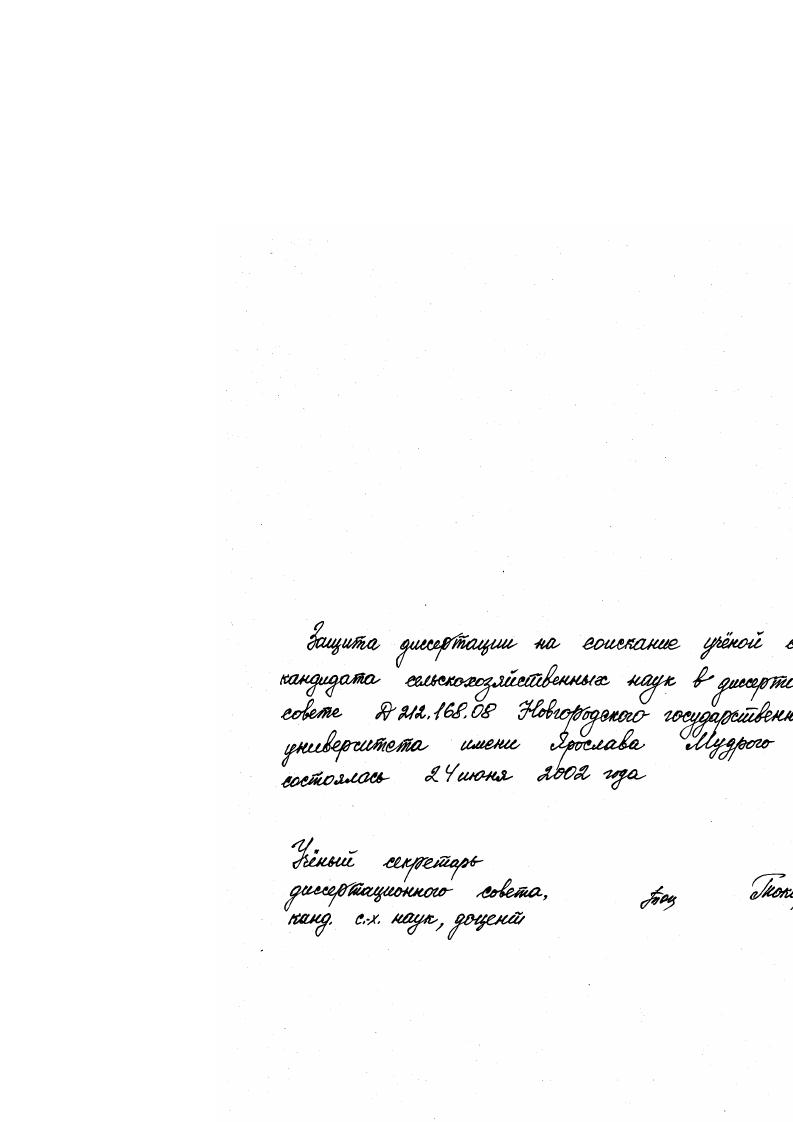 Защита диссертации на соискание учёной с
кандидата сельскохозяйственных наук в диссерта
совете Д 212.168.08 Новгородского государственн
университета имени Ярослава Мудрого
состоялась 24 июня 2002 года
Учёный секретарь
диссертационного совета,
канд. с.-х. наук, доцент